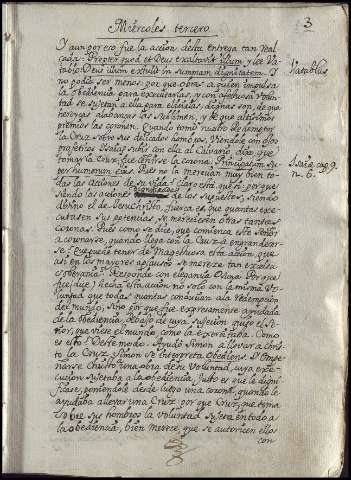 Miercoles tercero
3
Y aun por eso fue la accion desta entrega tan Real
Propter quod et Deus exaltavit illum, y lee Va
tablo: Deus illum extulit in summam dignitatem. Y
no podia ser menos por que obras a quien impulsa
la obediencia para executarlas, y con la propia volun
tad se sujetan a ella para elegirlas, dignas son, de que
alabanças las sublimen, y de que altissimos
premios las coronen. Quando tomó nuestro
la Cruz sobre sus delicados hombros, viendole con ojos
profeticos Isaias subir con ella al Calvario, dijo que
tomar la Cruz fue ceñirse la corona: Principatus su
per humerum eius. Pues no la merecian muy bien to
das las acciones de su vida? Claro está que si, por que
siendo las acciones de los supuestos, siendo
divino el de Jesu Christo, fuerza es, que quantas exe
cutasen sus potencias, se mereciesen otras tantas
coronas. Pues como se dice, que comienza este Señor
a coronarse, quando llega con la Cruz a engrandecer
se? Que puede tener de Magestuosa esta accion, que
asi en los mayores aplausos se merece tan excelsa
soberania? Responde con elegancia
que hecha esta accion no solo con la misma Vo
luntad que todas quantas conducian a la redempcion
del mundo, sino por que fue expresamente ayudada
de la obediencia, de su sujecion quiso el Se
ñor, que viese el mundo como la executaba. Como
es esto? Deste modo. Ayudó Simon a llevar a Chris
to la Cruz. Simon se interpreta Obediens. O
narse Christo una obra de su Voluntad, cuya exe
cucion sujetaba a la obediencia. Justo es que la digni
ficase, poniendola desde luego una corona, quando le
ayudaba a llevar una Cruz, por que Cruz, que toma
sobre sus hombros la Voluntad sujeta en todo a
la obediencia, bien merece, que se autoricen ellos
con
Vatablus
Isaiæ cap. 9.
n. 6.